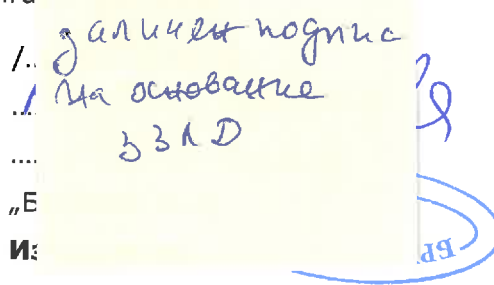 /..
заличен подпис
на основание
....
ЗЗЛД
....
„Б
Из
БР